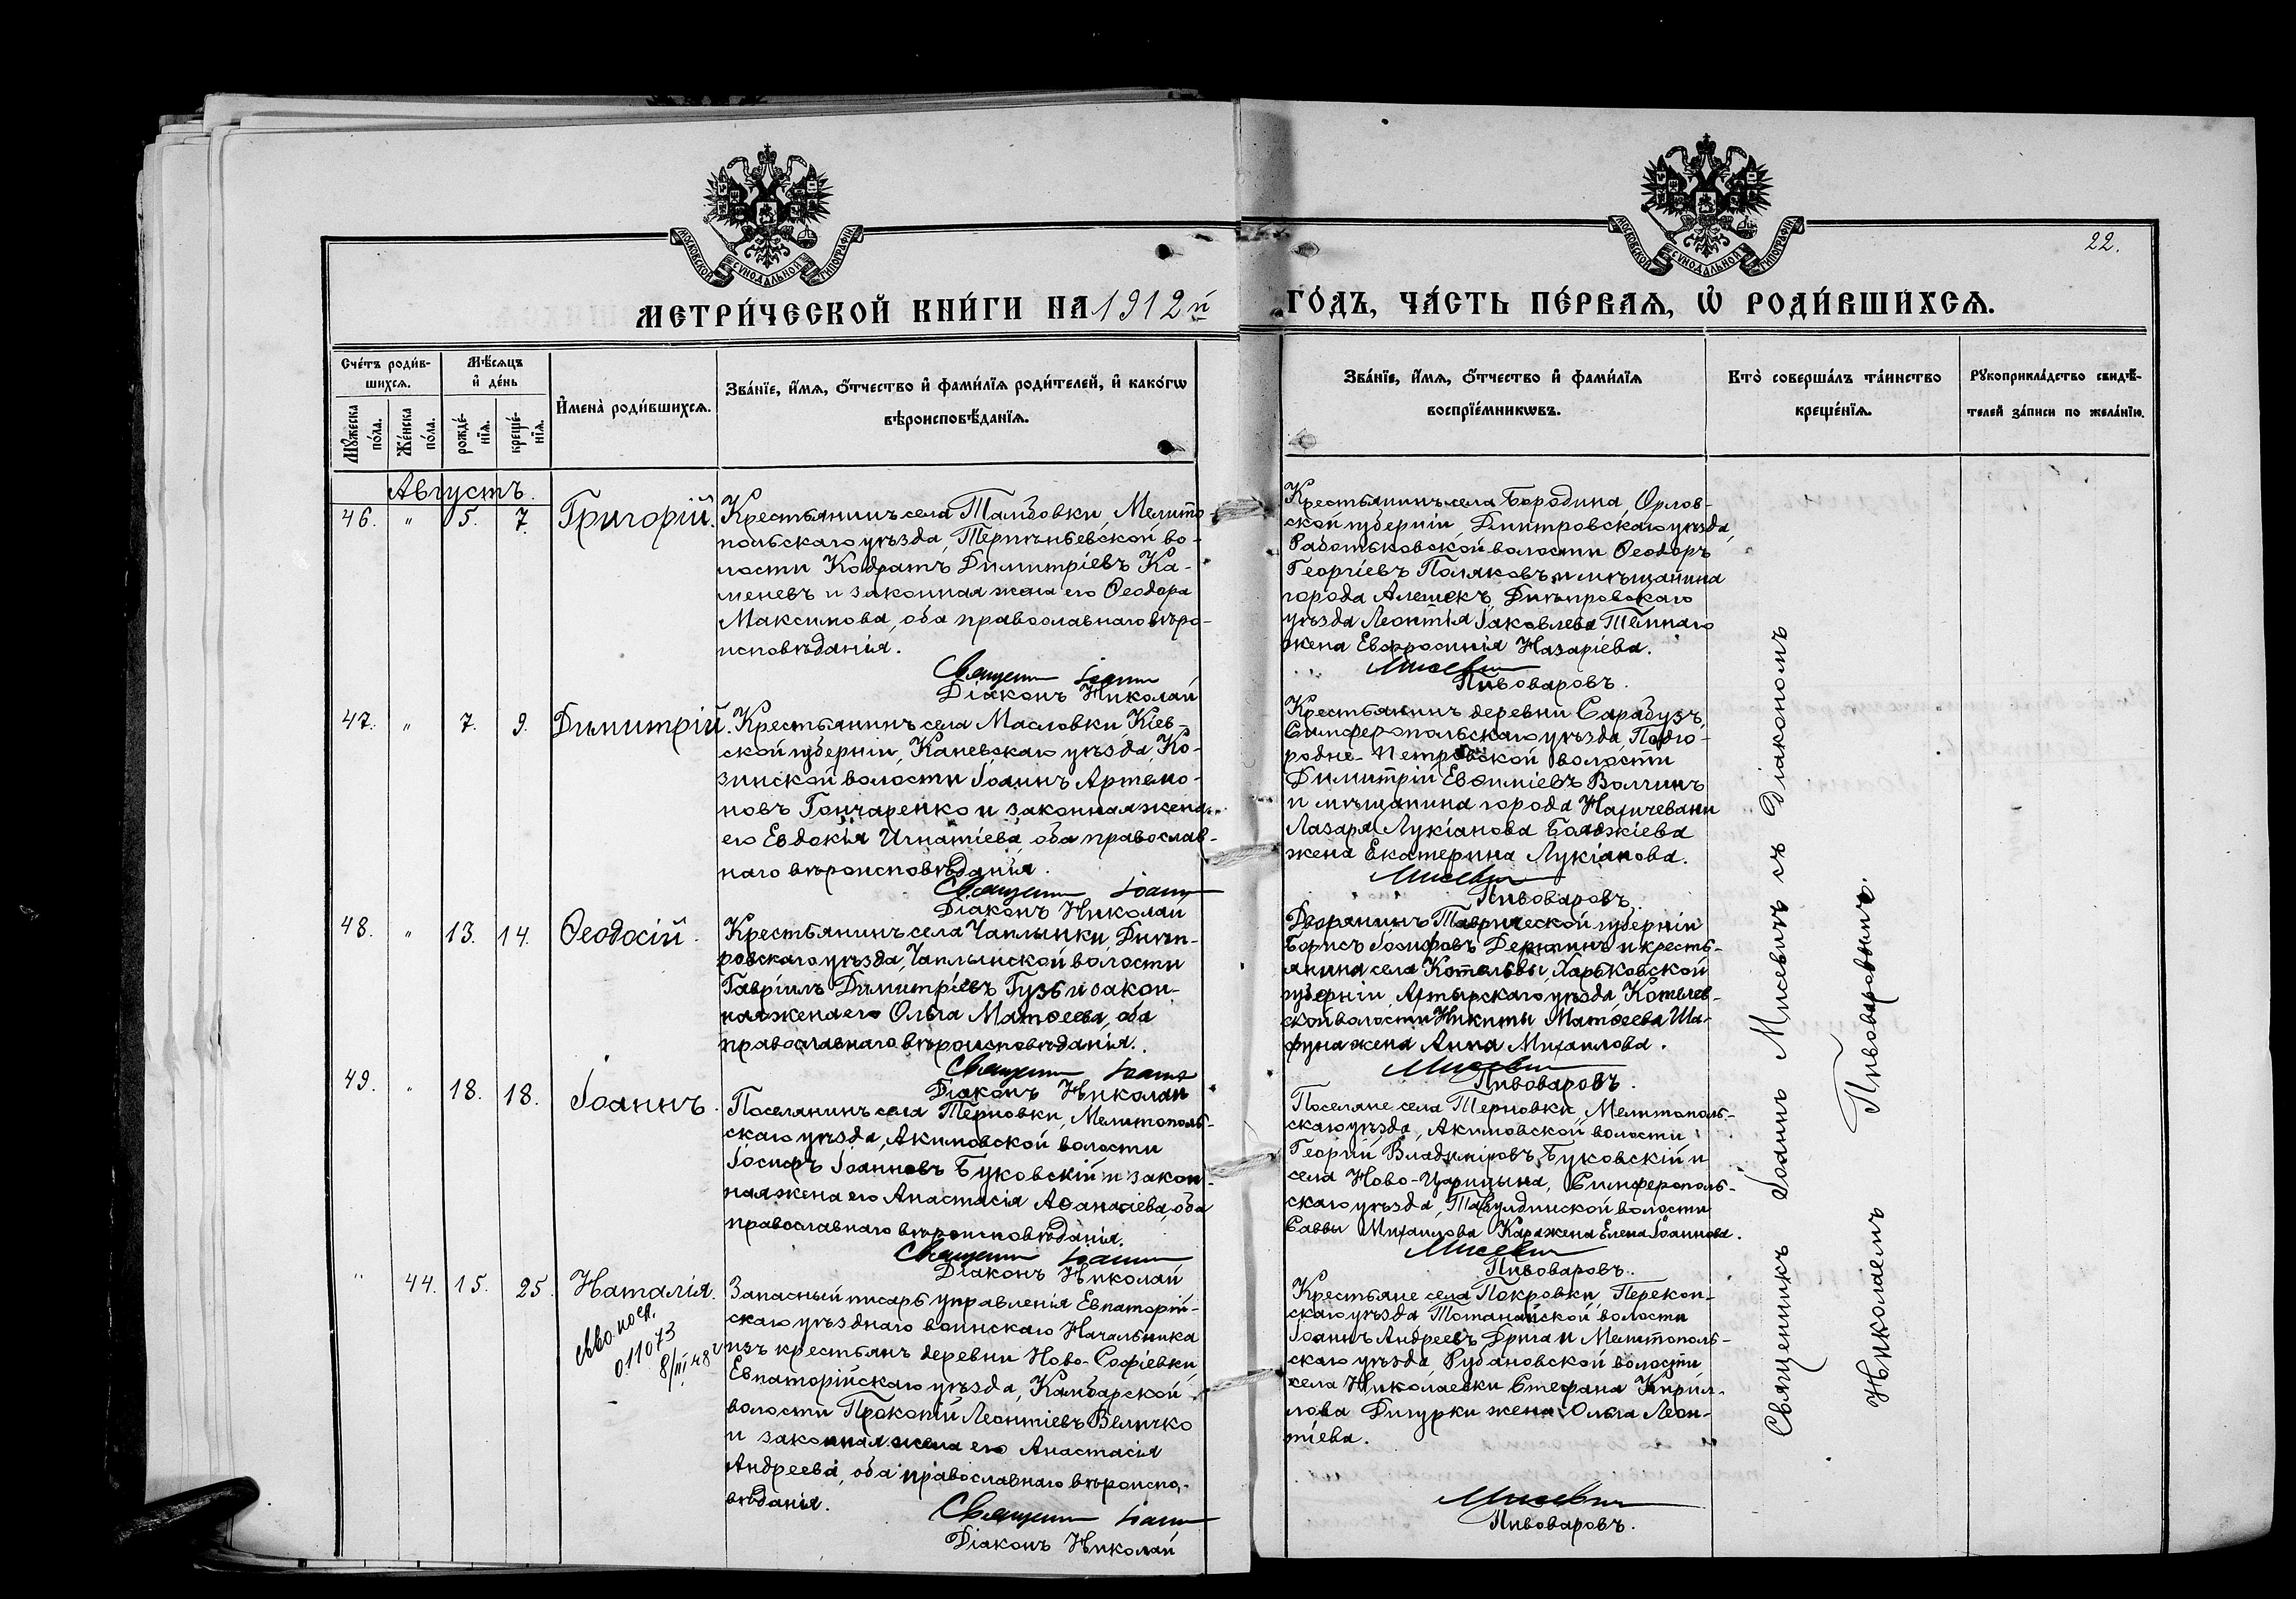 МОСКОВСКОЙ СѴНОДАЛЬНОЙ ТИПОГРАФІИ
МОСКОВСКОЙ СѴНОДАЛЬНОЙ ТИПОГРАФІИ
22.
МЕТРИ́ЧЕСКОЙ КНИ́ГИ НА 1912 й ГО́ДЪ, ЧА́СТЬ ПЕ́РВАѦ, Ѡ҆ РОДИ́ВШИХСѦ.
Сче́тъ роди́в-
шихсѧ.
Мѣ́сѧцъ
и҆ де́нь
Мꙋ́жеска
по́ла.
Же́нска
по́ла.
рожде́-
нїѧ.
креще́-
нїѧ.
И҆мена̀ роди́вшихсѧ.
Зва́нїе, и҆́мѧ, ѻ҆́тчество и҆ фами́лїѧ роди́телей, и҆ како́гѡ
вѣроисповѣ́данїѧ.
Зва́нїе, и҆́мѧ, ѻ҆́тчество и҆ фами́лїѧ
воспрїе́мникѡвъ.
Кто̀ соверша́лъ та́инство
креще́нїѧ.
Рꙋкоприкла́дство свидѣ́-
телей за́писи по жела́нїю.
Августъ.
46. " 5. 7. Григорій.
Крестьянинъ села Тамбовки, Мелито-
польскаго уѣзда, Терпѣньевской во-
лости Кодратъ Димитріевъ Ка-
меневъ и законная жена его Ѳеодора
Максимова, оба православнаго вѣро-
исповѣданія.
Священник Іоанн Мисевич
Діаконъ Николай Пивоваровъ.
Крестьянинъ села Бородина, Орлов-
ской губерніи, Дмитровскаго уѣзда,
Работьковской волости Ѳеодоръ
Георгіевъ Поляковъ и мѣщанина
города Алешекъ, Днѣпровскаго
уѣзда Леонтія Іаковлева Темнаго
жена Евфросинія Назаріева.
47. " 7. 9. Димитрій.
Крестьянинъ села Масловки, Кіев-
ской губерніи, Каневскаго уѣзда, Ко-
зинской волости Іоаннъ Артемо-
новъ Гончаренко и законная жена
его Евдокія Игнатіева, оба православ-
наго вѣроисповѣданія.
Священник Іоанн Мисевич
Діаконъ Николай Пивоваровъ.
Крестьянинъ деревни Сарабузъ,
Симферопольскаго уѣзда, Подго-
родне-Петровской волости
Димитрій Евѳиміевъ Волгинъ
и мѣщанина города Нахичевани
Лазаря Лукіанова
жена Екатерина Лукіанова.
48. " 13. 14. Ѳеодосій.
Крестьянинъ села Чаплынки, Днѣп-
ровскаго уѣзда, Чаплынской волости
Гавріилъ Димитріевъ Гузь и закон-
ная жена его Ольга Матѳеева, оба
православнаго вѣроисповѣданія.
Священник Іоанн Мисевич
Діаконъ Николай Пивоваровъ.
Дворянинъ Таврической губерніи
Борисъ Іосифовъ и кресть-
янина села Котельвы, Харьковской
губерніи, Ахтырскаго уѣзда, Котелев-
ской волости Никиты Матѳеева Ша-
фуна жена Анна Михаилова.
49. " 18. 18. Іоаннъ.
Поселянинъ села Терновки, Мелитополь-
скаго уѣзда, Акимовской волости
Іосифъ Іоанновъ Буковскій и закон-
ная жена его Анастасія Аѳанасіева, оба
православнаго вѣроисповѣданія.
Священник Іоанн Мисевич
Діаконъ Николай Пивоваровъ.
Поселяне села Терновки, Мелитополь-
скаго уѣзда, Акимовской волости
Георгій Владиміровъ Буковскій и
села Ново-Царицына, Симферополь-
скаго уѣзда, Табулдинской волости
Саввы Михаилова Кара жена Елена Іоаннова.
" 44. 15. 25. Наталія.
011073
8/III 48
Запасный писарь управленія Евпаторій-
скаго уѣзднаго воинскаго Начальника
изъ крестьянъ деревни Ново-Софіевки,
Евпаторійскаго уѣзда, Камбарской
волости Прокопій Леонтіевъ Величко
и законная жена его Анастасія
Андреева, оба православнаго вѣроиспо-
вѣданія.
Священник Іоанн Мисевич
Діаконъ Николай Пивоваровъ.
Крестьяне села Покровки, Перекоп-
скаго уѣзда волости
Іоаннъ Андреевъ Дрига и Мелитополь-
скаго уѣзда Рубановской волости
села Николаевки Стефана Кирил-
лова Дигурки жена Ольга Леон-
тіева.
Священникъ Іоаннъ Мисевичъ съ Діакономъ
Николаемъ Пивоваровымъ.